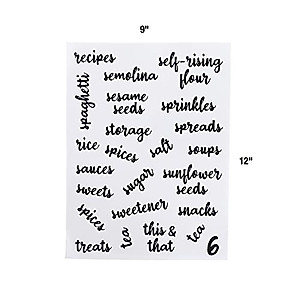 9"
12"
recipes
self-rising
flour
semolina
spaghetti
sesame
seeds
sprinkles
storage
spreads
rice
spices
salt
soups
sauces
sugar
sunflower
seeds
sweets
spices
sweetener
snacks
treats
tea
this &
that
tea
6